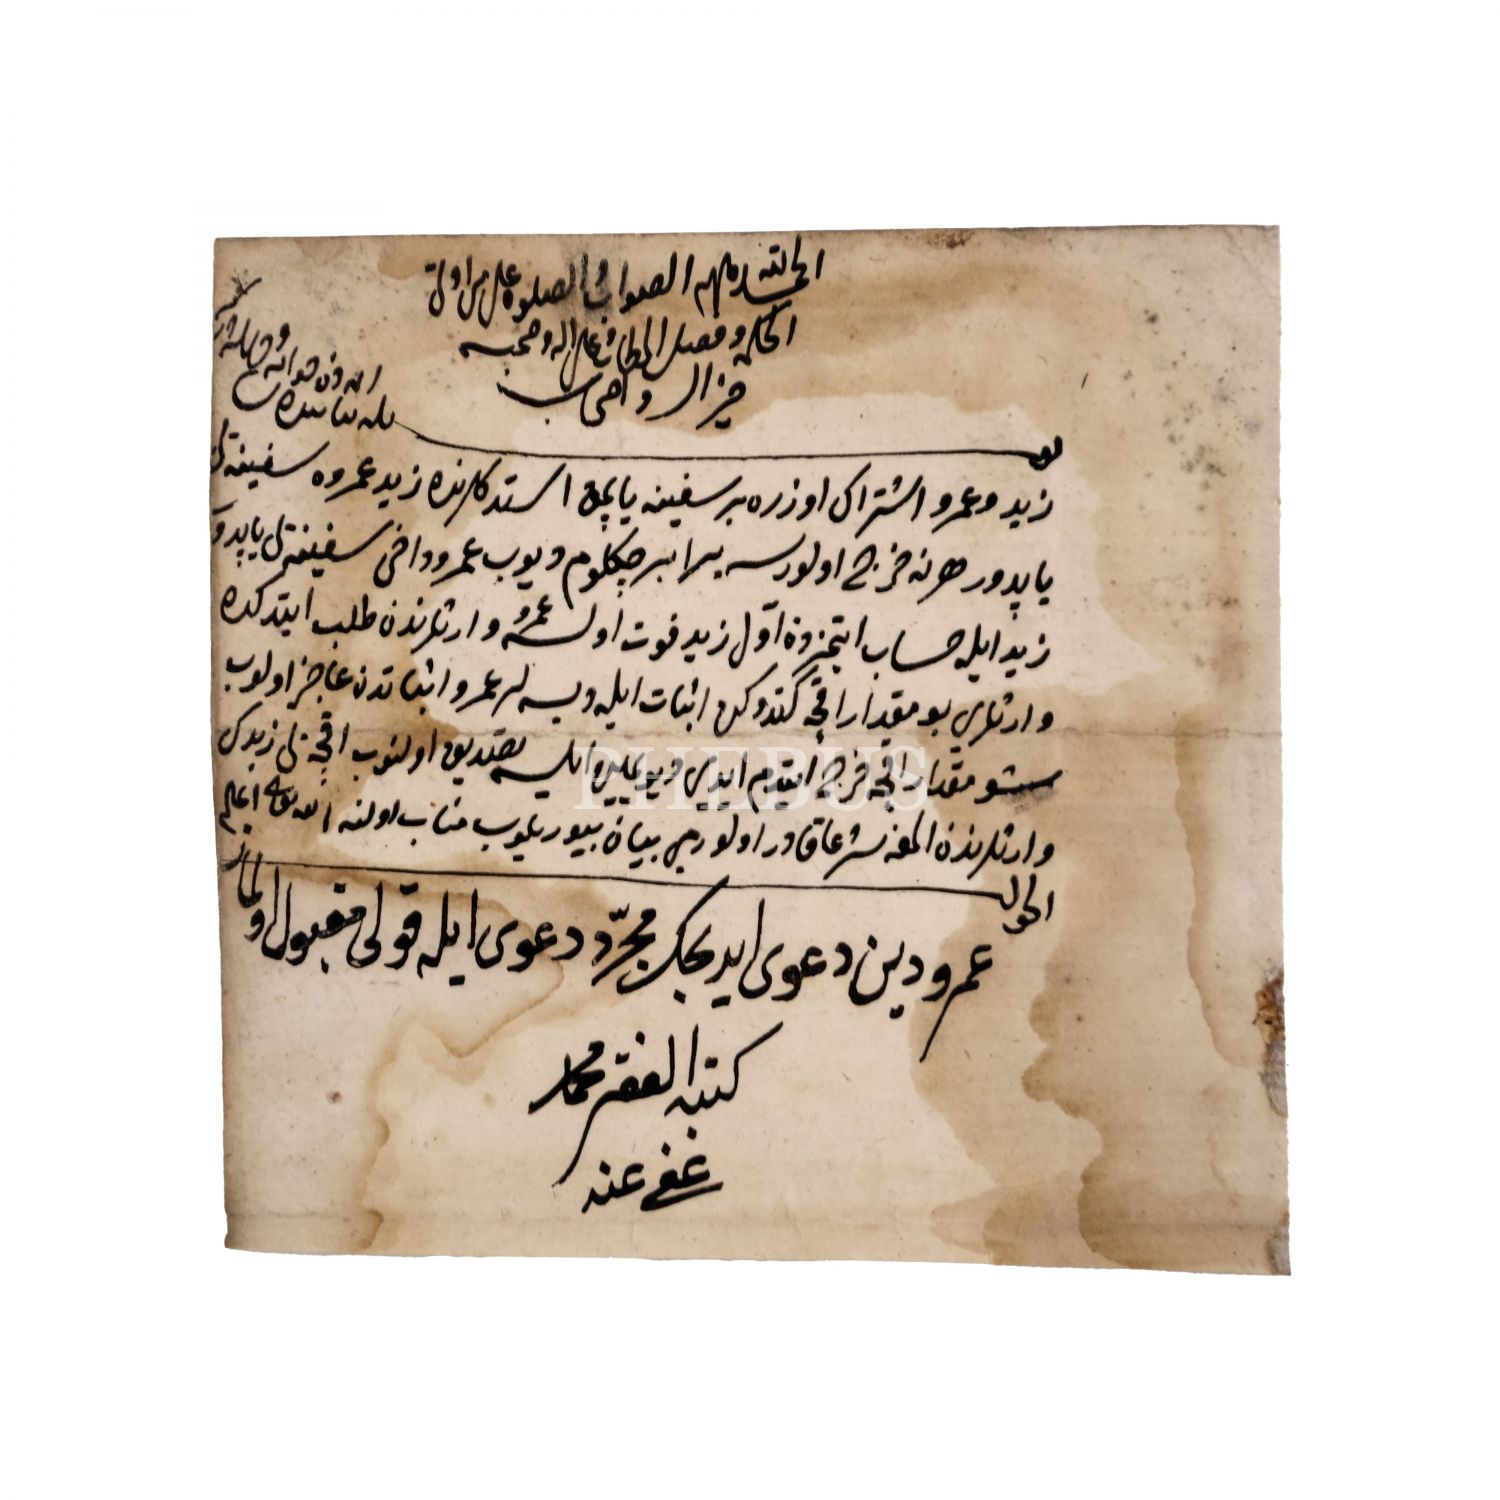 الحمد لله ملهم الصواب والصلوة على من اوتى
الحكمة وفصل الخطاب وعلى اله وصحبه
خير ال واصحاب
بو
زيد و عمرو اشتراك اوزره بر سفينه ياپمق استدكلرنده زيد عمروه سفينه يى
ياپدور هر نه خرج اولورسه برابر چكلوم ديوب عمرو داخى سفينه يى ياپدروب
زيد ايله حساب ايتمزدن اول زيد فوت اولسه عمرو وارثلرندن طلب ايتدكده
وارثلرى بو مقدار اقچه كتدوكن اثبات ايله ديسه لر عمرو اثباتدن عاجز اولوب
شو مقدار اقچه خرج ايتدم ايدى ديو يمين ايلسه تصديق اولنوب اقچه يى زيدك
وارثلرندن المغه شرعا قادر اولورمى بيان بيوريلوب مثاب اولنه الله تعالى اعلم
الجواب اولماز
عمرو دين دعوى ايديجك مجرّد دعوى ايله قولى مقبول
كتبه الفقير محمد
عفى عنه
PHEBUS